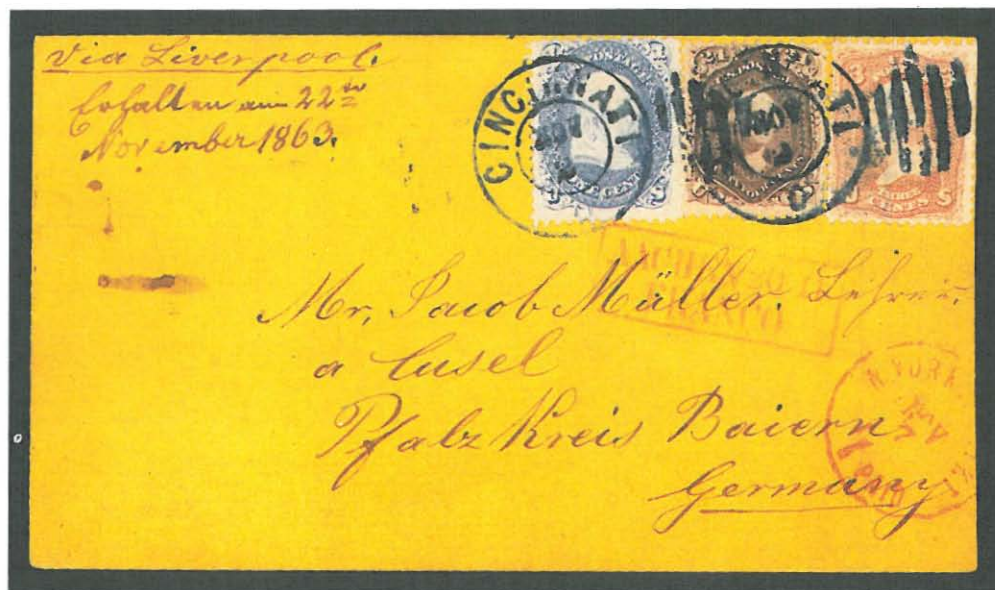 Via Liverpool.
Erhalten am 22ten
November 1863.
CINCINNATI
NOV
CENTS
AACHEN
FRANCO
Mr. Jacob Müller. Lehrer.
a Cusel
Pfalz Kreis Baiern
Germany
N. YORK
PAID